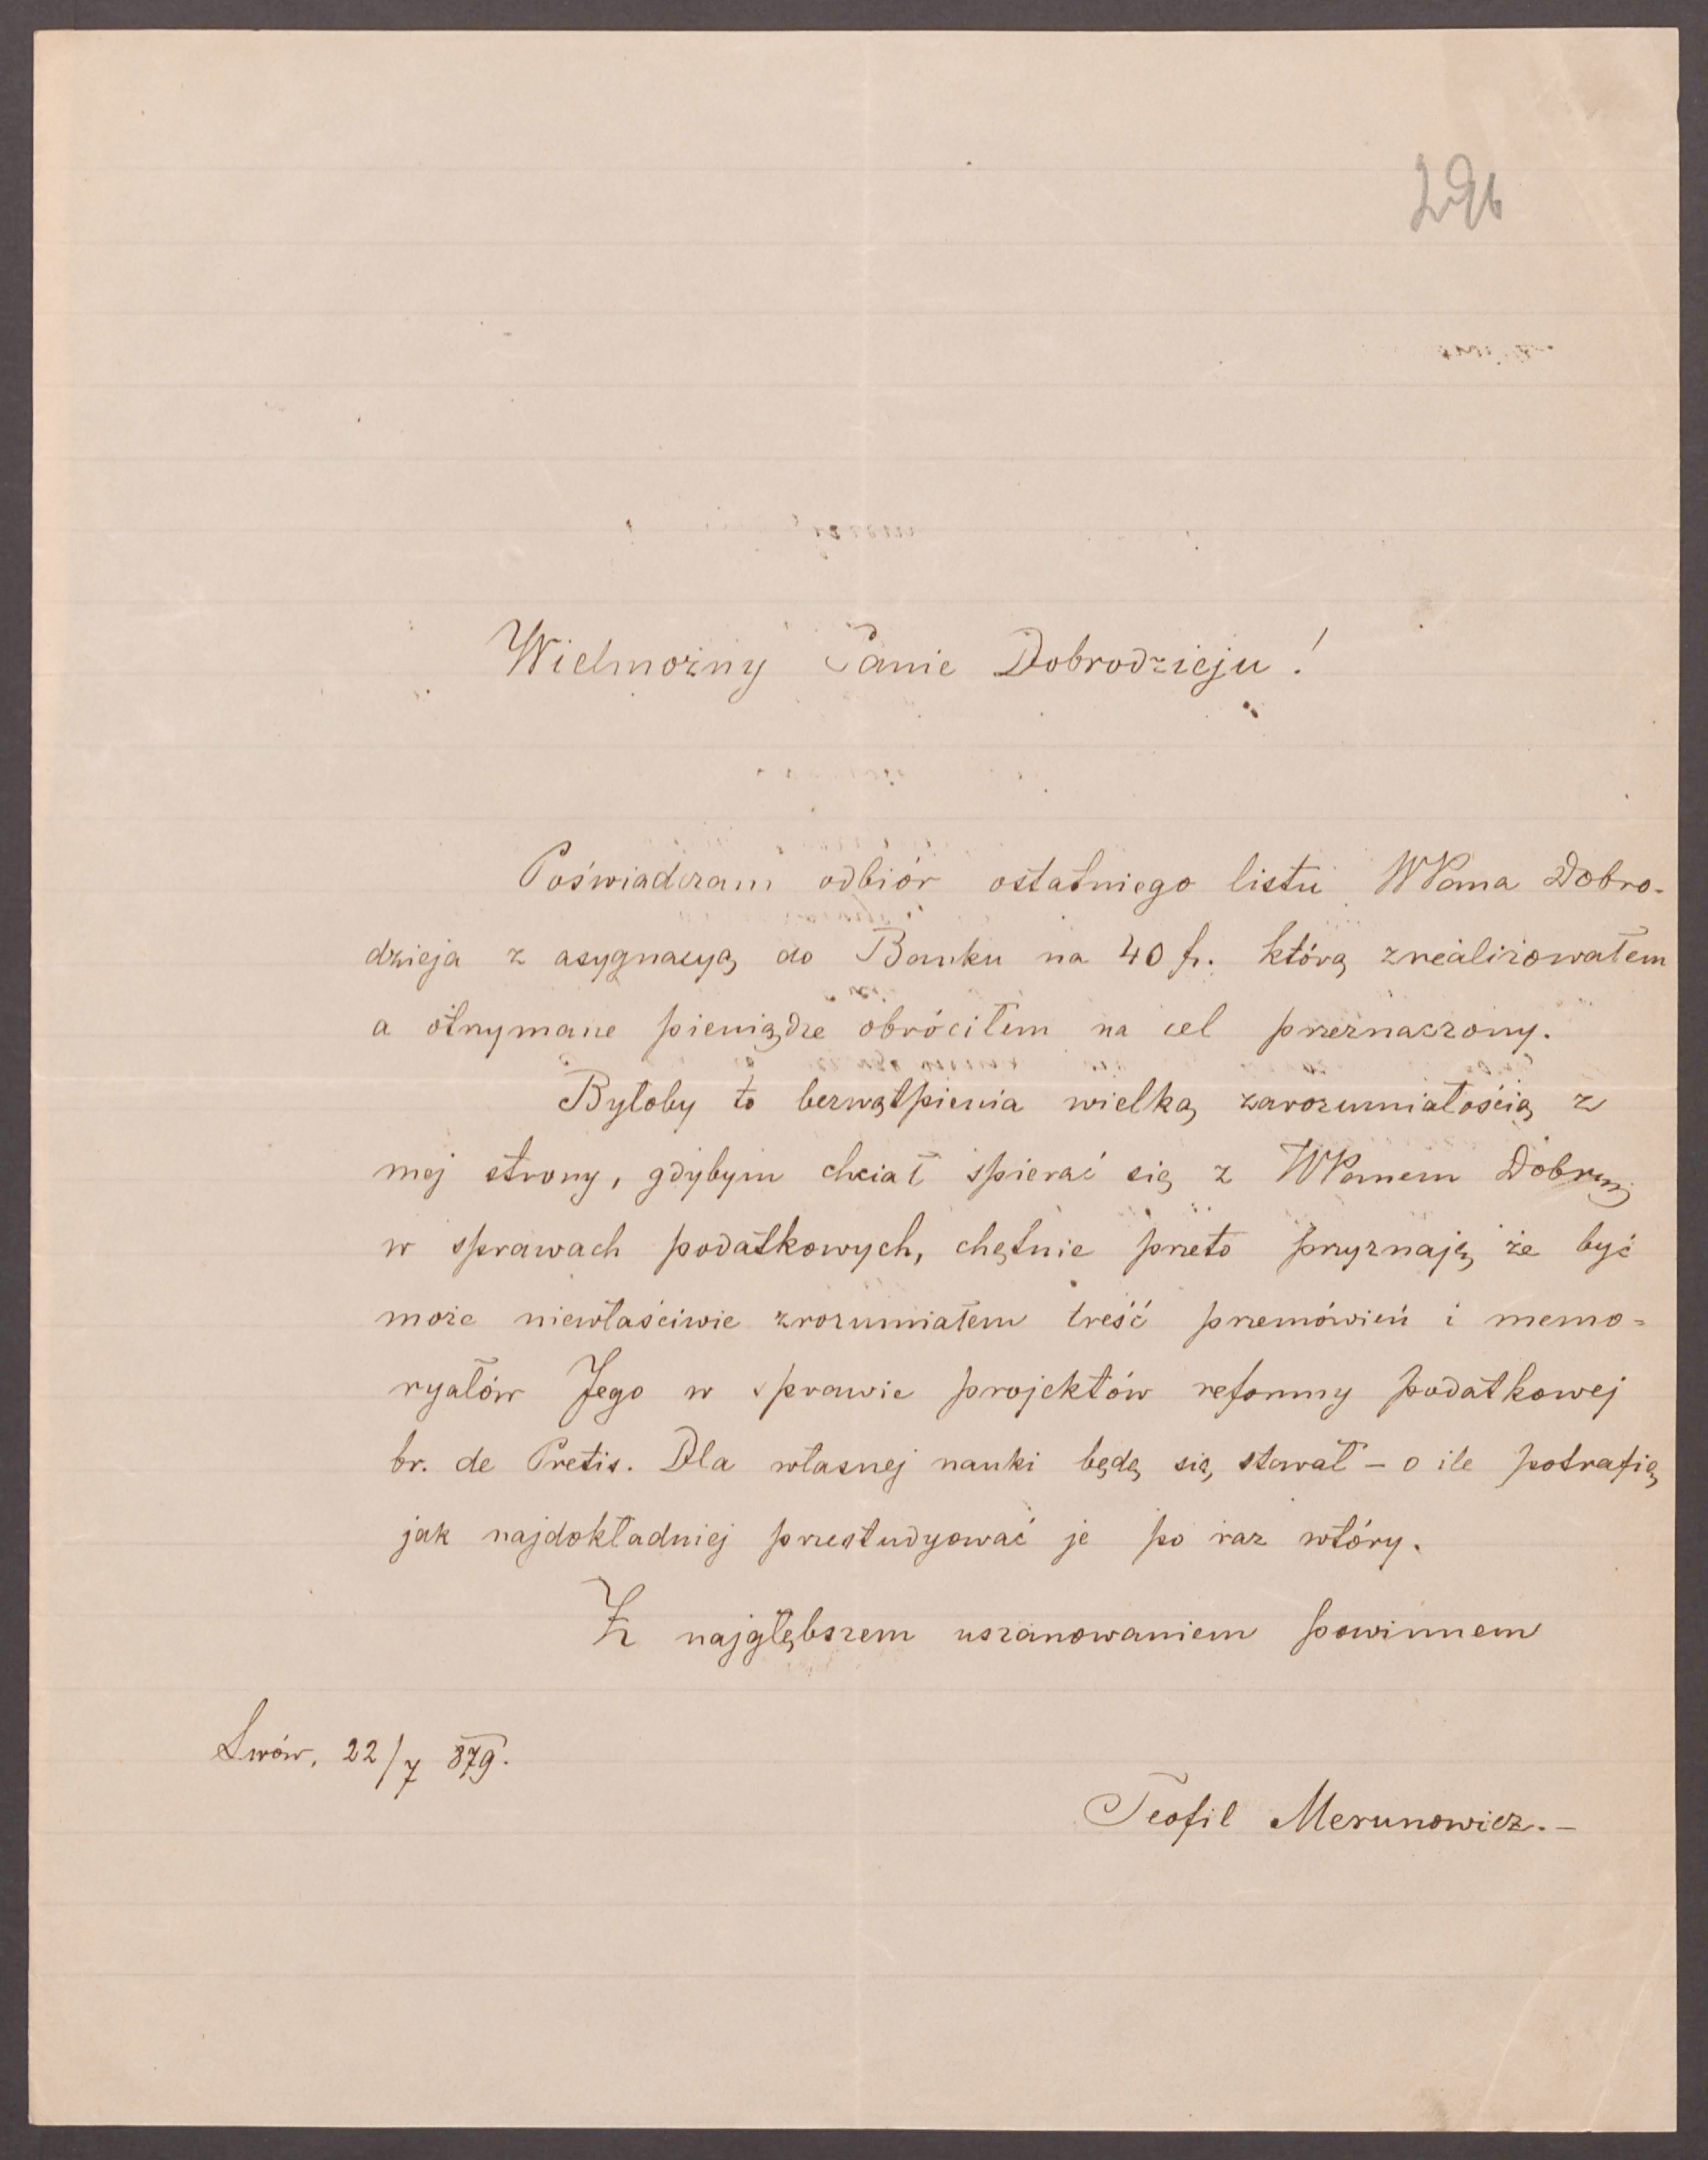 296
Wielmożny Panie Dobrodzieju!
Poświadczam odbiór ostatniego listu WPana Dobro-
dzieja z asygnacyą do Banku na 40 fr. którą zrealizowałem
a otrzymane pieniądze obróciłem na cel przeznaczony.
Byłoby to bezwątpienia wielką zarozumiałością z
mej strony, gdybym chciał spierać się z WPanem
w sprawach podatkowych, chętnie przeto przyznaję, że być
może niewłaściwie zrozumiałem treść przemówień i memo=
ryałów Jego w sprawie projektów reformy podatkowej
br. de Pretis. Dla własnej nauki będę się starał – o ile potrafię,
jak najdokładniej przestudyować je po raz wtóry.
Z najgłębszem uszanowaniem powinnem
Lwów, 22/7 879.
Teofil Merunowicz.–